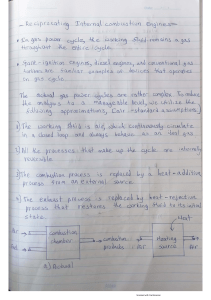 - Reciprocating Internal combustion Engines -
- In gas power cycle, the working fluid remains a gas
throughout the entire cycle.
- Spark-ignition engines, diesel engines, and conventional gas
turbines are familiar examples of devices that operates
on gas cycle.
The actual gas power cycles are rather complex. To reduce
the analysis to a manageable level, we utilize the
following approximations, (air-standard assumptions)
1) The working fluid is air, which continuously circulates
in a closed loop and always behaves as an ideal gas
2) All the processes that make up the cycle are internally
reversible
3) The combustion process is replaced by a heat-addition
process from an external source.
4) The exhaust process is replaced by heat-rejection
process that restores the working fluid to its initial
state.
Heat
Air
combustion
chamber
combustion
products
Air
Heating
source
Air
fuel
A) Actual